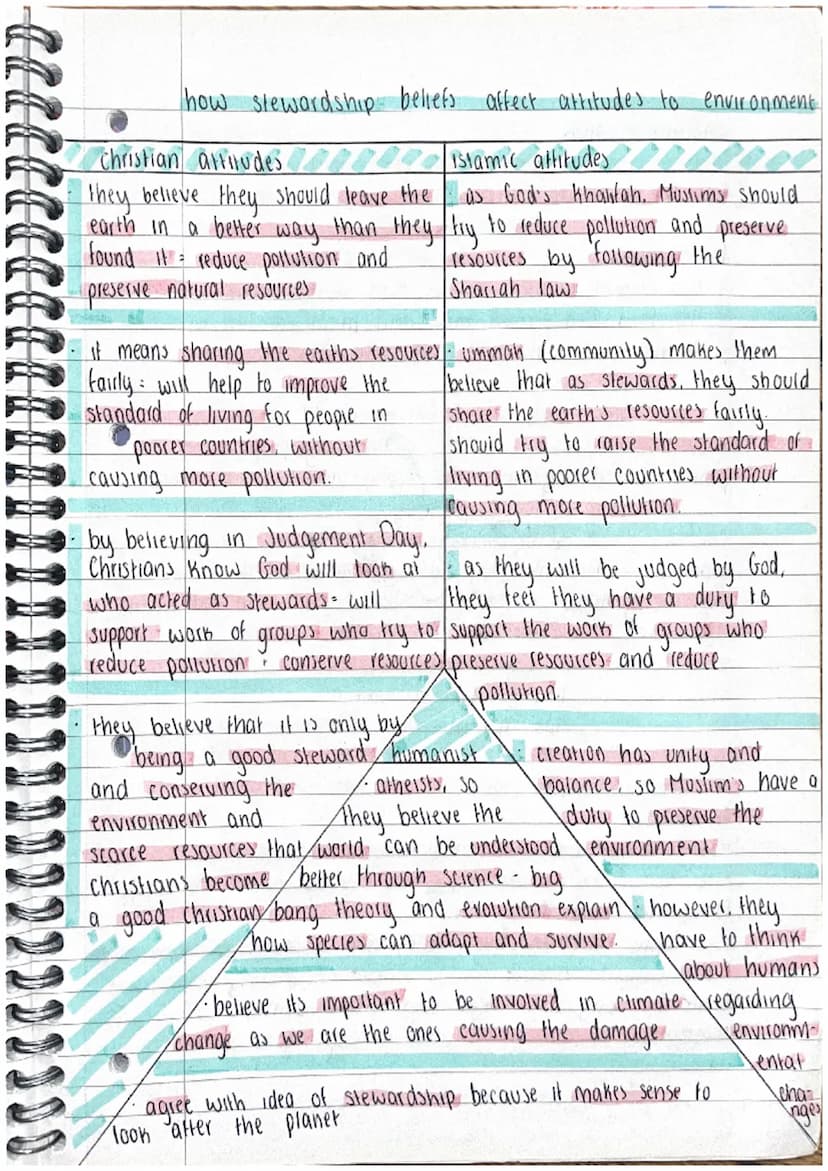 how stewardship beliefs affect attitudes to environment
Christian attitudes
they believe they should leave the
earth in a better way than they
found it = reduce pollution and
preserve natural resources
· it means sharing the earths resources
fairly = will help to improve the
standard of living for people in
poorer countries, without
causing more pollution.
· by believing in Judgement Day,
Christians know God will look at
who acted as stewards = will
support work of groups who try to
reduce pollution + conserve resources
· they believe that it is only by
being a good steward
and conserving the
environment and
scarce resources that
christians become
a good christian
Islamic attitudes
· as God's khalifah, Muslims should
try to reduce pollution and preserve
resources by following the
Shariah law
· ummah (community) makes them
believe that as stewards, they should
share the earth's resources fairly.
should try to raise the standard of
living in poorer countries without
causing more pollution.
· as they will be judged by God,
they feel they have a duty to
support the work of groups who
preserve resources and reduce
pollution.
· creation has unity and
balance, so Muslim's have a
duty to preserve the
environment
· however, they
have to think
about humans
regarding
environm-
ental
cha-
nges
humanist
· atheists, so
they believe the
world can be understood
better through science - big
bang theory and evolution explain
how species can adapt and survive.
· believe its important to be involved in climate
change as we are the ones causing the damage
· agree with idea of stewardship because it makes sense to
look after the planet